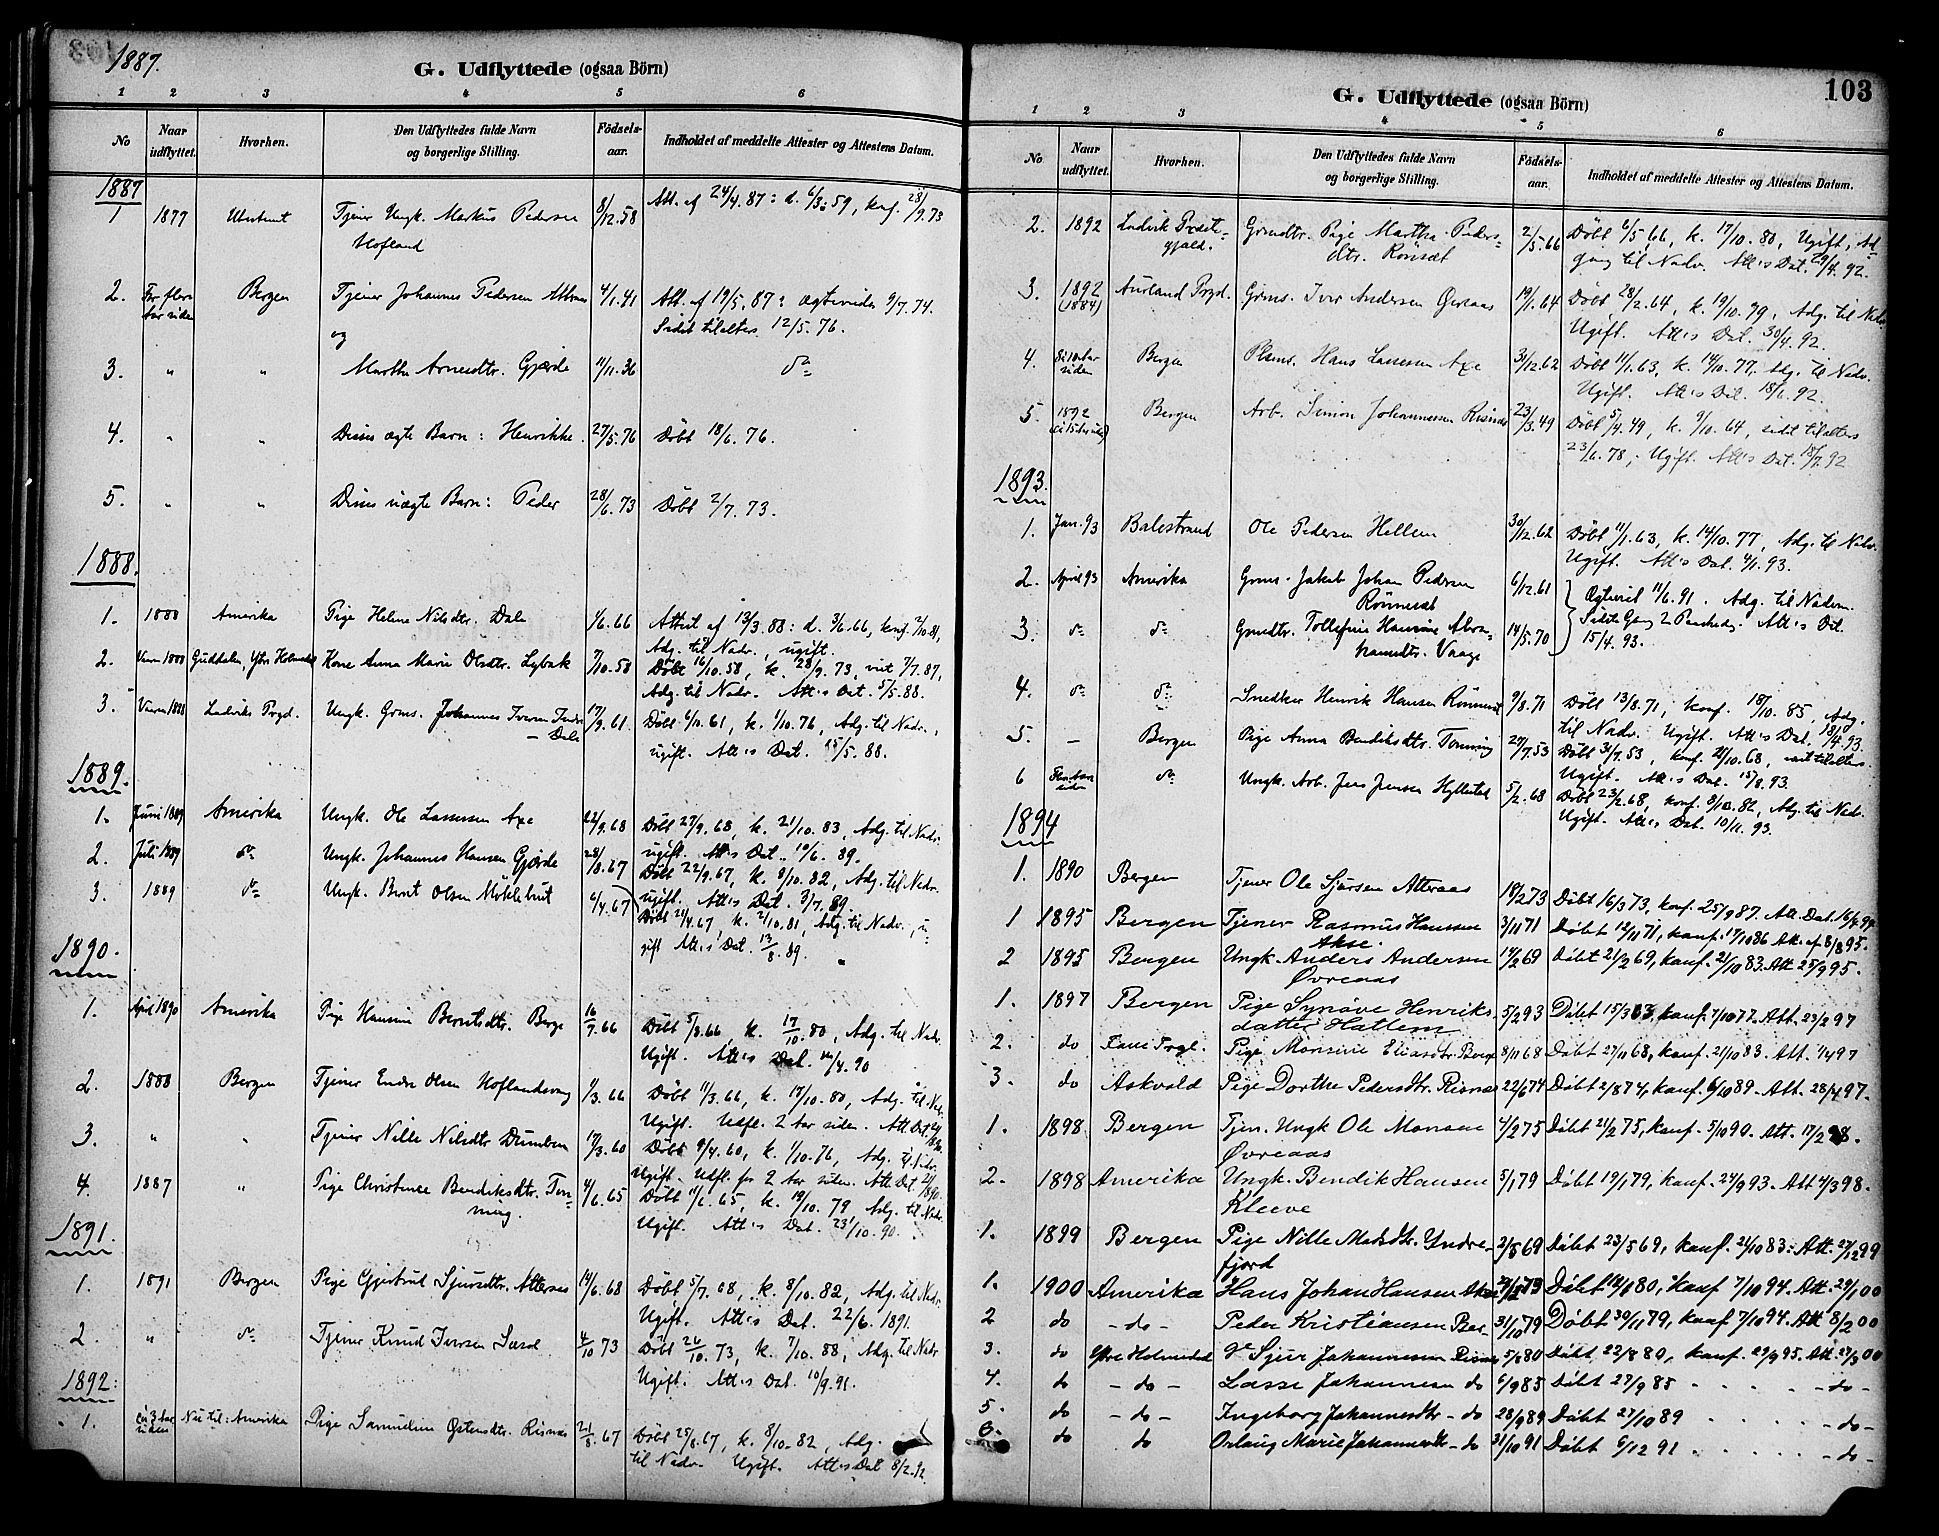 1887.
G. Udflyttede (ogsaa Börn)
1 2 3 4 5 6
No
Naar udflyttet.
Hvorhen.
Den Udflyttedes fulde Navn og borgerlige Stilling.
Födsels-aar.
Indholdet af meddelte Attester og Attestens Datum.
1887
1 1879 Tjener Ungk. Markus Pedersen 8/12.58 Att. af 24/4.87: d. 6/3.59, konf. 28/9.73
Hofland
2. Bergen Tjener Johannes Pedersen 4/1.41 Att. af 19/5.87: Ægteviede 9/7.74.
og Sidst tilalters 12/5.76.
3. " " Martha Arnesdtr. Gjærde 11/11.36 do
4. " " Disses ægte Barn: Henrikke. 27/5.76 Döbt 18/6.76.
5. " " Disses uægte Barn: Peder 28/6.73 Döbt 2/7.73.
1888.
1. 1888 Amerika Pige Helene Nilsdtr. Dale 1/6.66 Attest af 13/3.88: d. 3/6.66, konf. 2/10.81,
Adg. til Nadv., ugift.
2. 1888 Ytre Holmedal Kone Anna Marie Olsdtr. 7/10.58 Döbt 16/10.58, k. 28/9.73, viet 7/7.87,
Adg. til Nadv. Att's Dat. 5/5.88.
3. 1888 Ladviks Prgd. Ungk. Grms. Johannes Iversen 17/9.61. Döbt 6/10.61, k. 1/10.76, Adg. til Nadv.,
– Dale ugift. Att's Dat. 15/5.88.
1889.
1. Juni 1889 Amerika Ungk. Ole Lassesen Axe 22/9.68 Döbt 27/9.68, k. 21/10.83, Adg. til Nadv.
ugift. Att's Dat. 10/6.89.
2. Juli 1889 do Ungk. Johannes Hansen Gjærde 28/8.67 Döbt 22/9.67, k. 8/10.82, Adg. til Nadv.
ugift. Att's Dat. 3/7.89.
3. 1889 do Ungk. Bernt Olsen Myklebust 6/4.67 Döbt 21/4.67 k. 2/10.81, Adg. til Nadv., u-
gift Att's Dat. 13/8.89.
1890.
1. April 1890 Amerika Pige Hansine Berntsdtr. Berge 16/7.66 Döbt 5/8.66, k. 17/10.80, Adg. til Nadv.
Ugift. Att's Dat. 4/90
2. 1888 Bergen Tjener Endre Olsen 1/3.66 Döbt 11/3.66, k. 17/10.80, Adg. til Nadv.
Ugift. Udfl. 2 aar siden. Att. Dat
3. " " Tjener Nille Nilsdtr 17/3.60 Döbt 9/4.60, k. 1/10.76, Adg. til Nadv.
Ugift. Udfl. for 2 aar siden. Att. Dat
4. 1887 " Pige Christence Bendiksdtr. Ton- 4/6.65 Döbt 11/6.65, k. 19/10.79 Adg. til Nadv.
ning. Ugift. Att's Dat. 23/10.90.
1891.
1. 1891 Bergen Pige Gjertrud Sjursdtr. Atteraas 14/6.68 Döbt 5/7.68, k. 8/10.82, Adg. til Nadv.
Ugift. Att's Dat. 22/6.1891.
2 " do Tjener Knud Iversen 4/10 73 Döbt 26/10.73, k. 7/10.88, Adg. til Nadv
Ugift. Att's Dat. 10/9.91.
1892.
1. 3 aar siden Nu til: Amerika Pige Samueline Østensdtr. Risnæs 21/8.67 Döbt 25/8.67, k. 8/10.82, Adg.
til Nadv. Ugift. Att's Dat 8/2.92.
103
G. Udflyttede (ogsaa Börn)
1 2 3 4 5 6
No
Naar udflyttet.
Hvorhen.
Den Udflyttedes fulde Navn og borgerlige Stilling.
Födsels-aar.
Indholdet af meddelte Attester og Attestens Datum.
2. 1892 Ladvik Præste- Grmdtr. Pige Martha Peders- 2/5.66 Döbt 6/5.66, k. 17/10.80, Ugift, Ad-
gjæld. dtr. Rönset gang til Nadv. Att's Dat. 29/4.92.
3. 1892 Aurland Prgd. Grms. Iver Andersen Øvreaas 19/1.64 Döbt 28/2.64, k. 19/10.79, Adg. til Nadv
(1884) Ugift. Att's Dat. 30/4.92.
4. 10 aar siden Bergen Plsms. Hans Lassesen Axe 31/12.62 Döbt 11/1.63, k. 14/10.77. Adg. til Nadv.
Ugift. Att's Dat. 18/6.92.
5. 1892 Bergen Arb. Simon Johannessen Risnæs 23/3.49 Döbt 5/4.49, k. 9/10.64, sidst tilalters
23/6.78, Ugift. Att's Dat. 18/7.92
1893.
1. Jan. 93 Balestrand Ole Pedersen Hellem 30/12.62 Döbt 11/1.63, k. 14/10.77, Adg. til Nadv.
Ugift. Att's Dat. 4/1.93.
2. April 93 Amerika Grms. Jakob Johan Pedersen 6/12.61 Ægteviet 11/6.91. Adg. til Nadv.
Rönneset Sidste Gang
3. do do Grmdtr. Tollefine Hansine Abra- 14/5.70 Att's Dat.
hamsdtr. Vaage 15/4.93.
4. do do Snedker Henrik Hansen Rönneset 9/8.71 Döbt 13/8.71, konf. 18/10.85, Adg.
til Nadv. Ugift. Att's Dat. 18/4.93.
5. – Bergen Pige Anna Bendiksdtr. Tonning 27/7.53 Döbt 31/7.53, konf. 21/10.68, sidst tilalters
Ugift. Att's Dat. 15/8.93.
6 siden do Ungk. Arb. Jens Jensen Hyllestad 5/2.68 Döbt 23/2.68, konf. 8/10.82, Adg. til Nadv.
Ugift. Att's Dat. 10/11.93.
1894
1. 1890 Bergen Tjener Ole Sjursen Atteraas 18/2 73 Döbt 16/3 73, konf. 25/9 87. Att. Dat. 16/
1 1895 Bergen Tjener Rasmus Hanssen 3/11 71 Döbt 12/11 71, konf. 17/10 86 Att. af 8/8 95.
Akse.
2 1895 Bergen Ungk. Anders Andersen 14/2 69 Döbt 21/2 69, konf. 21/10 83. Att 25/9 95.
Øvreaas
1. 1897 Bergen Pige Synöve Henriks- 5/2 93 Döbt 15/3 63, konf. 7/10 77. Att. 23/2 97
datter Hatlem
2. do Pige Monsine Eliasdtr. Berge 8/11 68 Döbt 27/11 68, konf. 21/10 83. Att. 1/4 97
3. do Askvold Pige Dorthe Pedersdtr. Risnæs 22/6 74 Döbt 2/8 74, konf. 6/10 89. Att. 28/4 97.
1. 1898 Bergen Tjen. Ungk Ole Monsen 4/2 75 Döbt 21/2 75, konf. 5/10 90. Att. 17/2 98.
Øvreaas
2. 1898 Amerika Ungk. Bendik Hansen 5/1 79 Döbt 19/1 79, konf. 24/9 93. Att 4/3 98.
Kleeve
1. 1899 Bergen Pige Nille Madsdtr. Yndre- 2/5 69 Döbt 23/5 69, konf. 21/10 83. Att. 27/12 99
fjord
1. 1900 Amerika Hans Johan Hansen Akse 79 Döbt 80, konf 7/10 94. Att. 29/1 00
2 do – do – Peder Kristiansen Ber- 31/10 79 Döbt 30/11 79, konf 7/10 94. Att 8/2 00
3. do Ytre Holmedal Sjur Johannessen Risnæs 5/8 80 Döbt 22/8 80, konf. 29/9 95. Att. 27/3 00
4. do – do – Lasse Johannesen do 6/9 85 Döbt 27/9 85 – do –
5. do – do – Ingeborg Johannesdtr – do 28/9 89 Döbt 27/10 89 – do –
6. do do Orlaug Marie Johannesdtr – do 31/10 91 Döbt 6/12 91 – do –